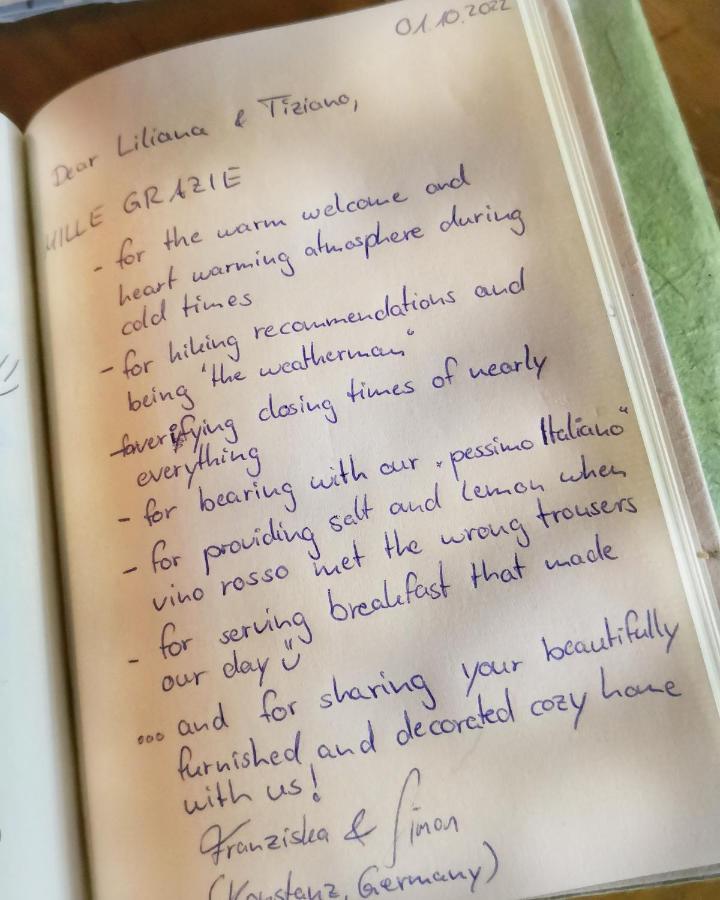 01.10.2022
Dear Liliana & Tiziano,
MILLE GRAZIE
- for the warm welcome and
heart warming atmosphere during
cold times
- for hiking recommendations and
being "the weatherman"
- for verifying closing times of nearly
everything
- for bearing with our „pessimo Italiano“
- for providing salt and lemon when
vino rosso met the wrong trousers
- for serving breakfast that made
our day ü
... and for sharing your beautifully
furnished and decorated cozy home
with us!
Franziska & Simon
(Konstanz, Germany)